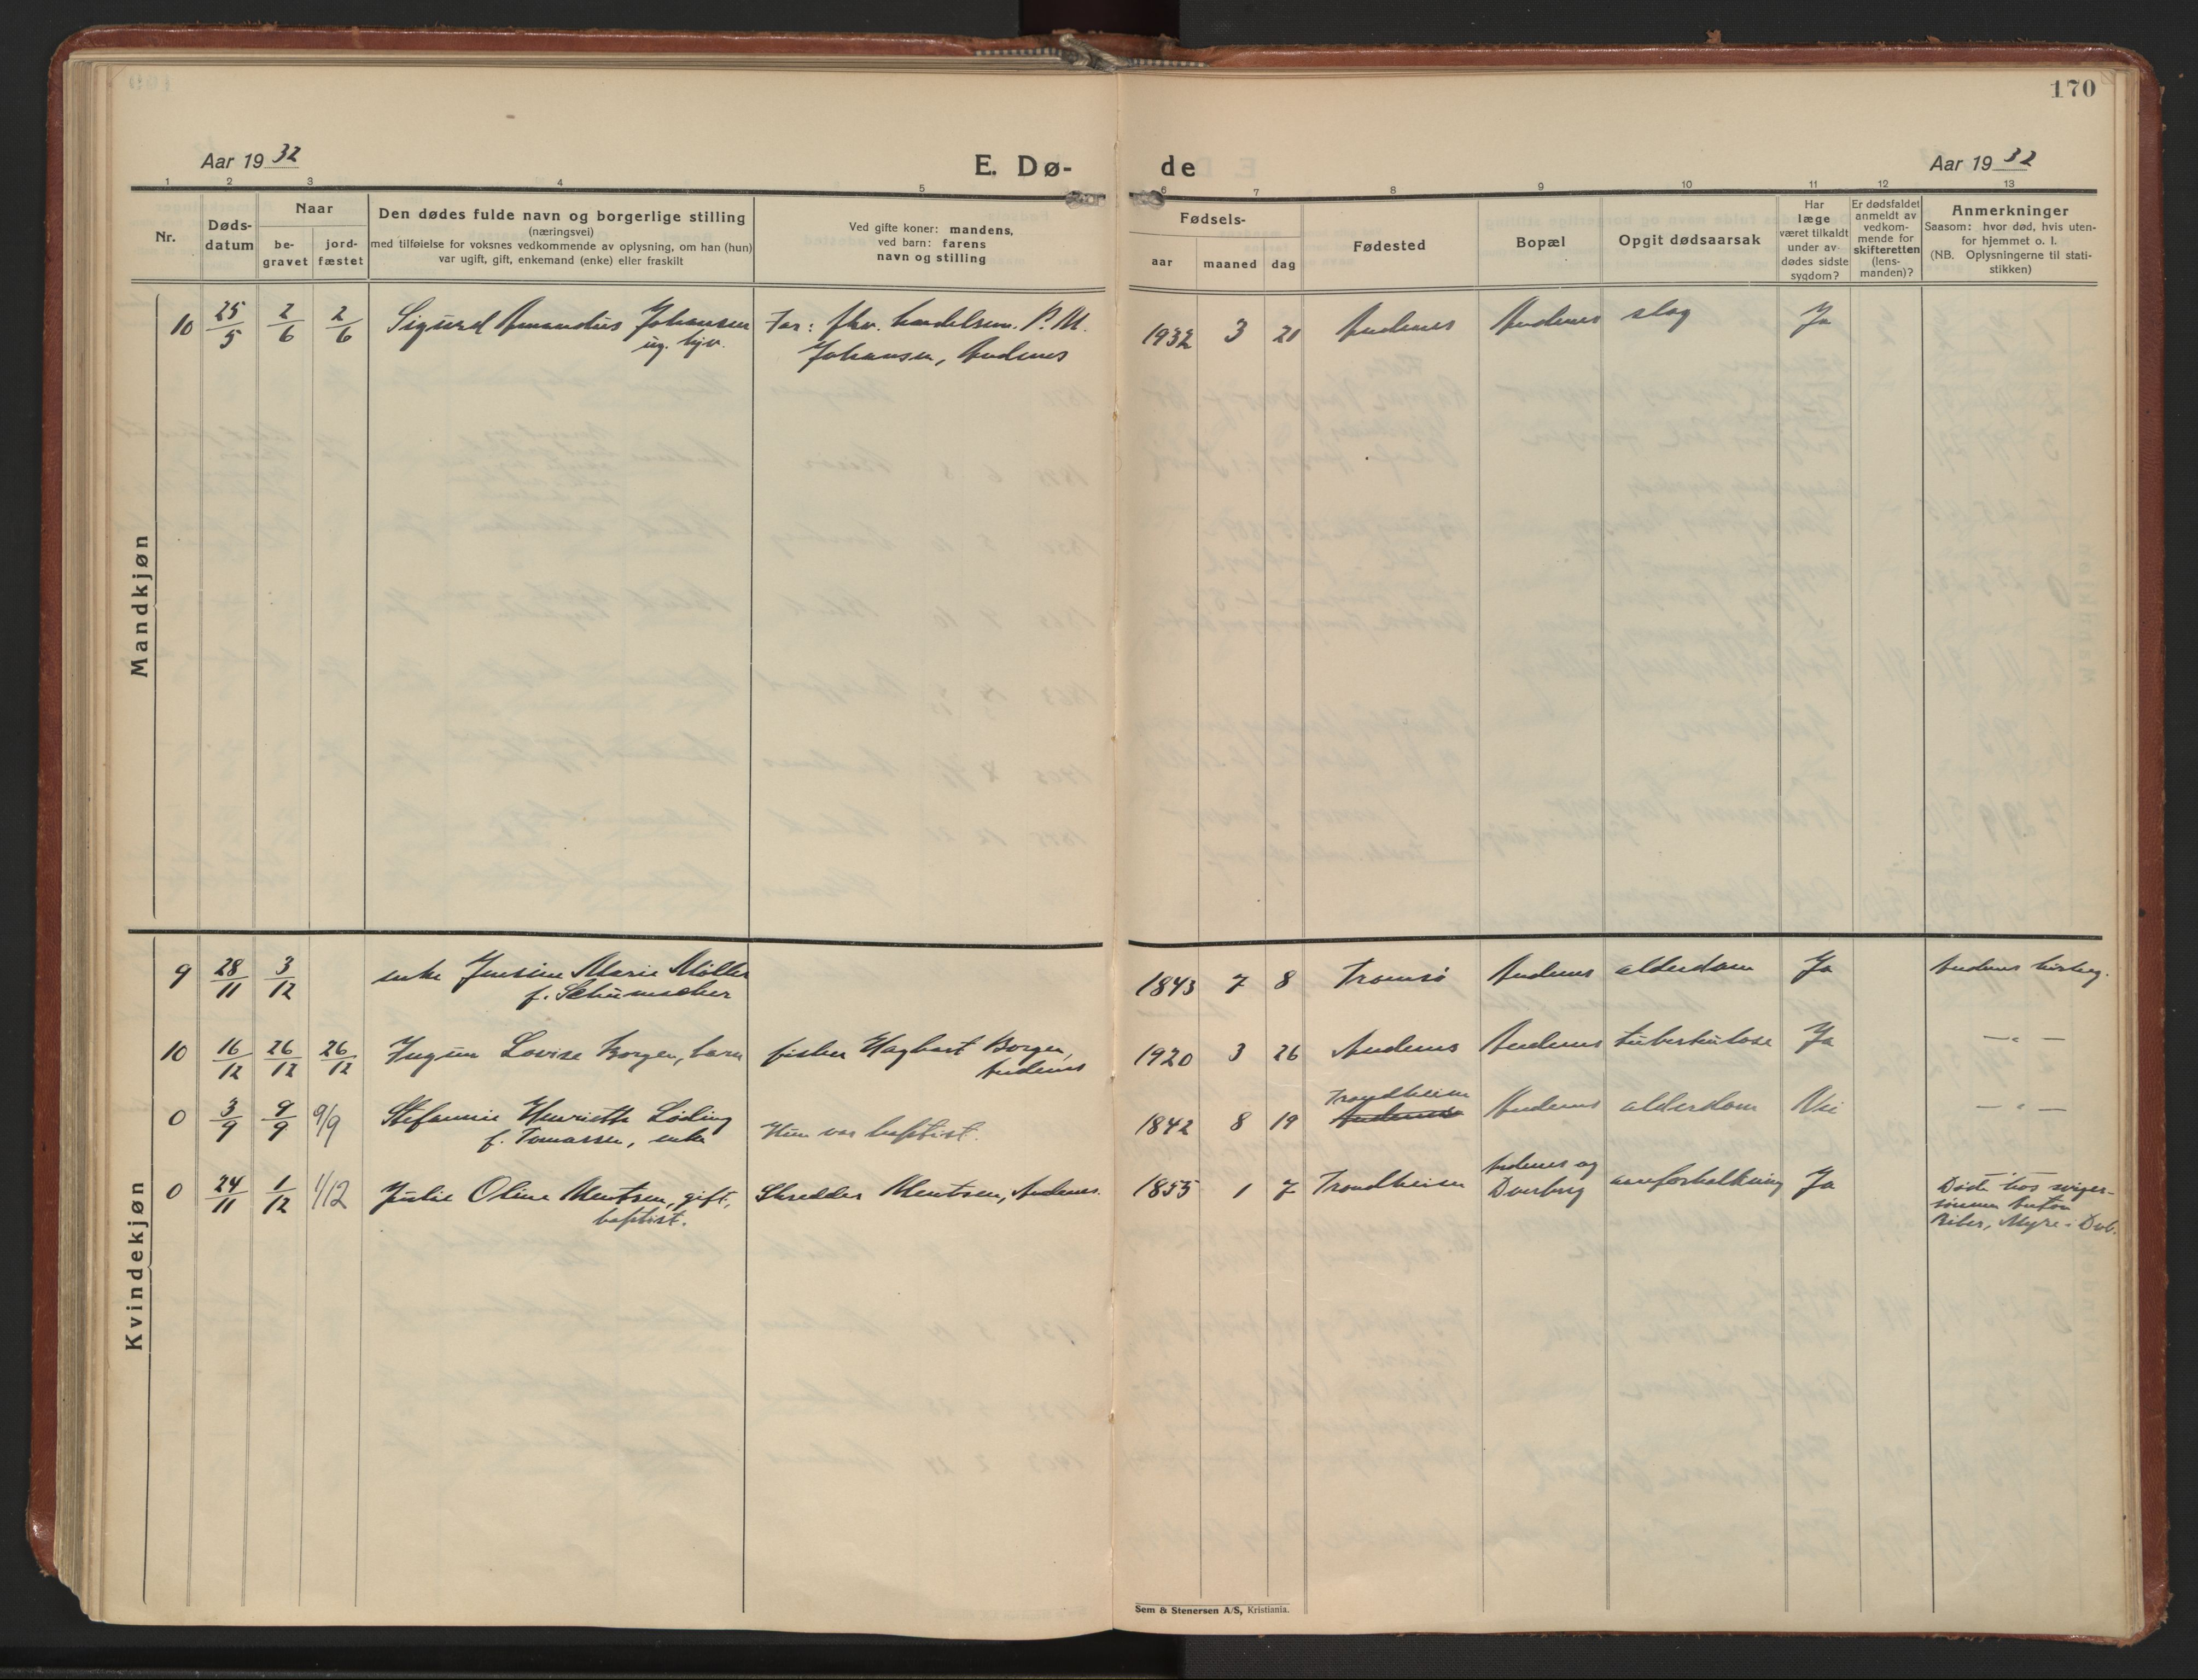 170
Aar 1932
E. Dø-
de
Aar 1932
1 2 3 4 5 6 7 8 9 10 11 12 13
Nr.
Døds-
datum
Naar
be-
gravet
jord-
fæstet
Den dødes fulde navn og borgerlige stilling
(næringsvei)
med tilføielse for voksnes vedkommende av oplysning, om han (hun)
var ugift, gift, enkemand (enke) eller fraskilt
Ved gifte koner: mandens,
ved barn: farens
navn og stilling
Fødsels-
aar
maaned
dag
Fødested
Bopæl
Opgit dødsaarsak
Har
læge
været tilkaldt
under av-
dødes sidste
sygdom?
Er dødsfaldet
anmeldt av
vedkom-
mende for
skifteretten
(lens-
manden)?
Anmerkninger
Saasom: hvor død, hvis uten-
for hjemmet o. l.
(NB. Oplysningerne til stati-
stikken)
Mandkjøn
10 25/5 2/6 2/6 Sigurd Amandus Johansen Far: fhv. handelsm. P. M. 1932 3 21 Andenes Andenes slag Ja
ug.
Johansen, Andenes
Kvindekjøn
9 28/11 3/12 enke Jensine Marie Möller 1843 7 8 Tromsö Andenes alderdom Ja Andenes kirkeg.
f. Schumacher
10 16/12 26/12 26/12 Ingun Lovise Borgen, barn fisker Hagbart Borgen, 1920 3 26 Andenes Andenes tuberkulose Ja — " —
Andenes
0 3/9 9/9 9/9 Stefanie Henriette Löding Hun var baptist. 1842 8 19 Trondheim Andenes Andenes alderdom Nei — " —
f. Tomassen, enke
0 24/11 1/12 1/12 Julie Oline Mentsen, gift, Skredder Mentsen, Andenes. 1855 1 7 Trondheim Andenes og Ja
baptist.
Dverberg aareforkalkning
Döde hos sviger-
sönnen Anton
Myre i Dvb.
Sem & Stenersen A/S, Kristiania.